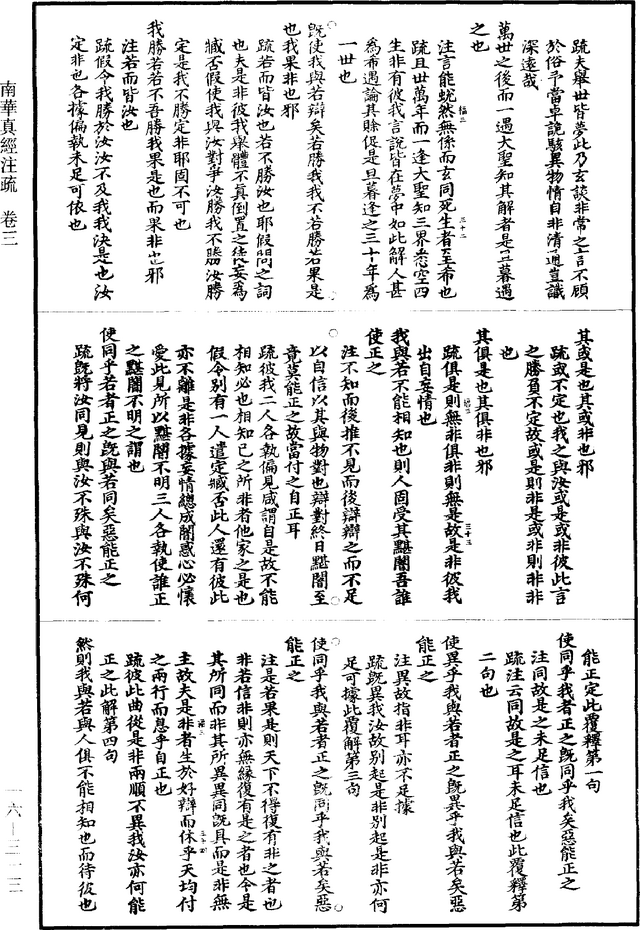 疏夫舉世皆夢此乃玄談非常之言不顧
於俗予當卓詭駭異物情自非清通豈識
深遠哉
萬世之後而一遇大聖知其解者是旦暮遇
之也
注言能蛻然無係而玄同死生者至希也
疏且世萬年而一逢大聖知三界悉空四
生非有彼我言說皆在夢中如此解人甚
為希遇論其賒促是旦暮逢之三十年為
一世也
既使我與若辯矣若勝我我不若勝若果是
也我果非也邪
疏若而皆汝也若不勝汝也耶假問之詞
也夫是非彼我舉體不真倒置之徒妄為
臧否假使我與汝對爭汝勝我不勝汝勝
定是我不勝定非耶固不可也
我勝若若不吾勝我果是也而果非也邪
注若而皆汝也
疏假令我勝於汝汝不及我我決是也汝
定非也各據偏執未足可依也
其或是也其或非也邪
疏或不定也我之與汝或是或非彼此言
之勝負不定故或是則非是或非則非非
也
其俱是也其俱非也邪
疏俱是則無非俱非則無是故是非彼我
出自妄情也
我與若不能相知也則人固受其黮闇吾誰
使正之
注不知而後推不見而後辯辯之而不足
以自信以其與物對也辯對終日黮闇至
竟莫能正之故當付之自正耳
疏彼我二人各執偏見咸謂自是故不能
相知必也相知己之所非者他家之是也
假令別有一人遣定臧否此人還有彼此
亦不離是非各據妄情總成闇惑心必懷
愛此見所以黮闇不明三人各執使誰正
之黮闇不明之謂也
使同乎若者正之既與若同矣惡能正之
疏既將汝同見則與汝不殊與汝不殊何
能正定此覆釋第一句
使同乎我者正之既同乎我矣惡能正之
注同故是之未足信也
疏注云同故是之耳未足信也此覆釋第
二句也
使異乎我與若者正之既異乎我與若矣惡
能正之
注異故指非耳亦不足據
疏既異我汝故別起是非別起是非亦何
足可據此覆解第三句
使同乎我與若者正之既同乎我與若矣惡
能正之
注是若果是則天下不得復有非之者也
非若信非則亦無緣復有是之者也今是
其所同而非其所異異同既具而是非無
主故夫是非者生於好辯而休乎天均付
之兩行而息乎自正也
疏彼此曲從是非兩順不異我汝亦何能
正之此解第四句
然則我與若與人俱不能相知也而待彼也
南華真經注疏　卷三
一六—三一三